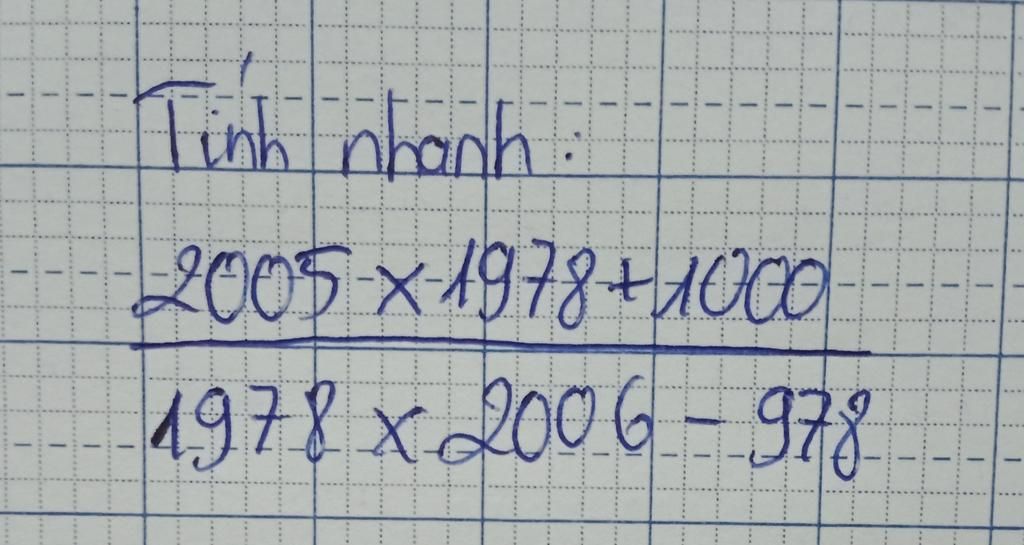 Tính nhanh:
2005 x 1978 + 1000
1978 x 2006 - 978